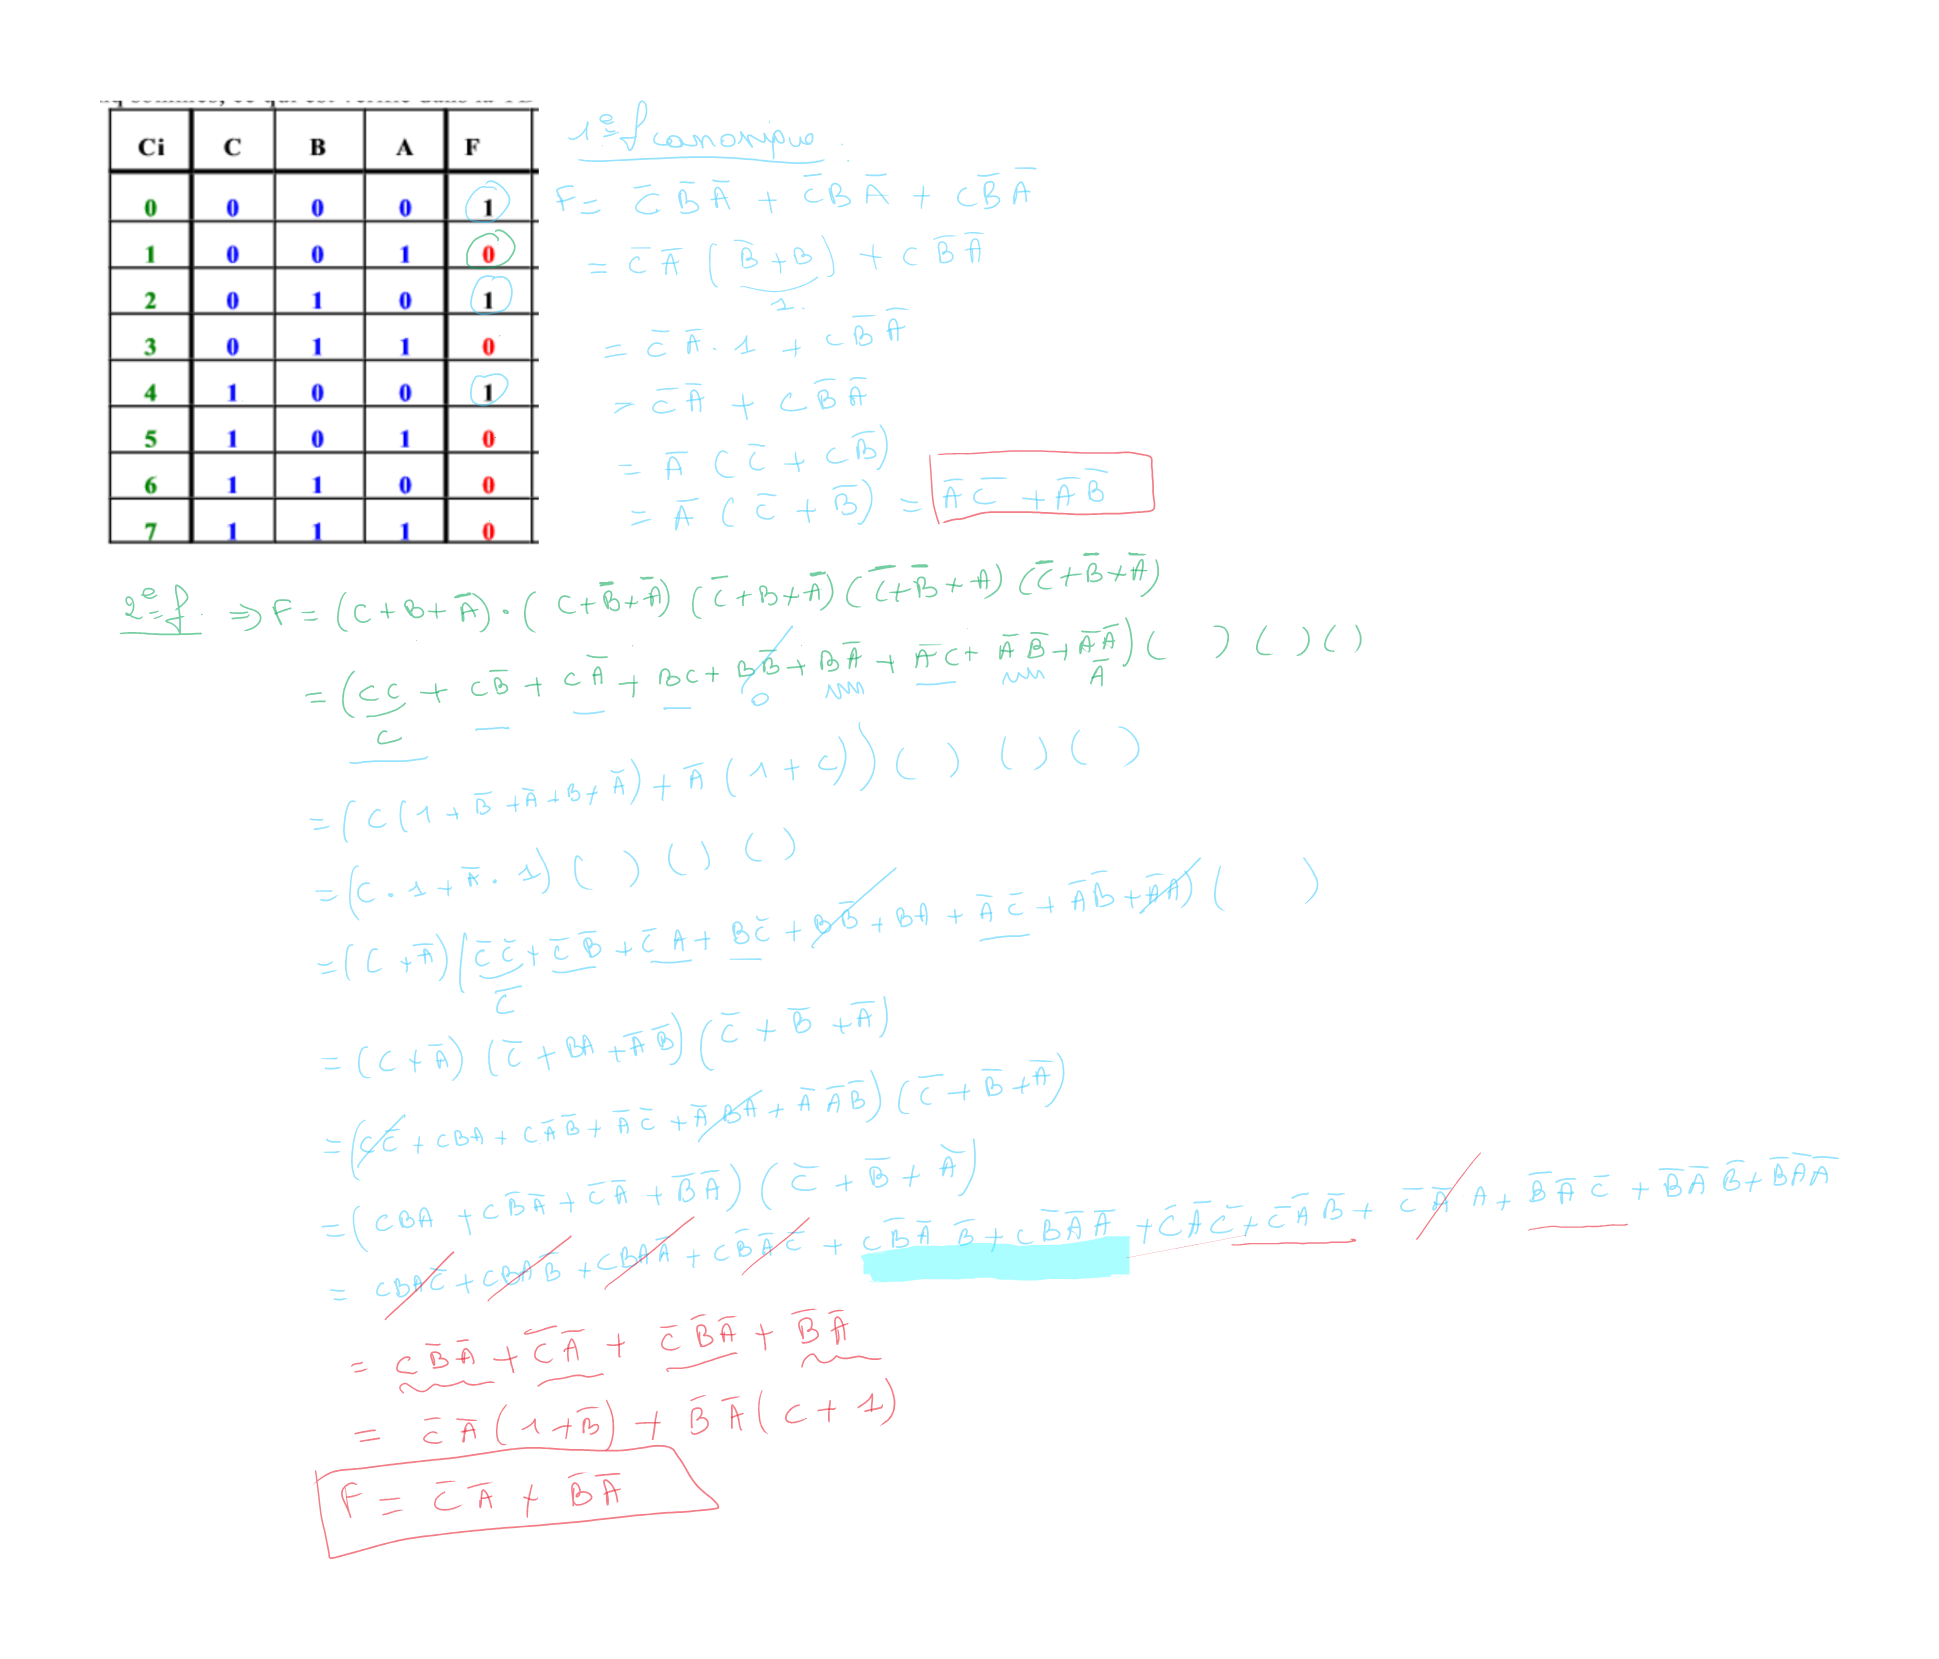 Ci C B A F
0 0 0 0 1
1 0 0 1 0
2 0 1 0 1
3 0 1 1 0
4 1 0 0 1
5 1 0 1 0
6 1 1 0 0
7 1 1 1 0
1e f canonique.
F = C̅ B̅ A̅ + C̅ B A̅ + C B̅ A̅
= C̅ A̅ ( B̅ + B ) + C B̅ A̅
1.
= C̅ A̅ . 1 + C B̅ A̅
= C̅ A̅ + C B̅ A̅
= A̅ ( C̅ + C B̅ )
= A̅ ( C̅ + B̅ ) = A̅ C̅ + A̅ B̅
2e f. ⇒ F = (C + B + A̅) . ( C + B̅ + A̅ ) ( C̅ + B + A̅ ) ( C̅ + B̅ + A ) ( C̅ + B̅ + A̅ )
= ( CC + C B̅ + C A̅ + BC + B B̅ + B A̅ + A̅ C + A̅ B̅ + A̅ A̅ ) ( ) ( ) ( )
C 0 A̅
= ( C ( 1 + B̅ + A̅ + B + A̅ ) + A̅ ( 1 + C ) ) ( ) ( ) ( )
= ( C . 1 + A̅ . 1 ) ( ) ( ) ( )
= ( C + A̅ ) ( C̅ C̅ + C̅ B̅ + C̅ A + B C̅ + B B̅ + BA + A̅ C̅ + A̅ B̅ + A̅ A ) ( )
C̅
= ( C + A̅ ) ( C̅ + BA + A̅ B̅ ) ( C̅ + B̅ + A̅ )
= ( C C̅ + CBA + C A̅ B̅ + A̅ C̅ + A̅ B A + A̅ A̅ B̅ ) ( C̅ + B̅ + A̅ )
= ( CBA + C B̅ A̅ + C̅ A̅ + B̅ A̅ ) ( C̅ + B̅ + A̅ )
= CBA C̅ + CBA B̅ + CBA A̅ + C B̅ A̅ C̅ + C B̅ A̅ B̅ + C B̅ A̅ A̅ + C̅ A̅ C̅ + C̅ A̅ B̅ + C̅ A̅ A + B̅ A̅ C̅ + B̅ A̅ B̅ + B̅ A̅ A̅
= C B̅ A̅ + C̅ A̅ + C̅ B̅ A̅ + B̅ A̅
= C̅ A̅ ( 1 + B̅ ) + B̅ A̅ ( C + 1 )
F = C̅ A̅ + B̅ A̅